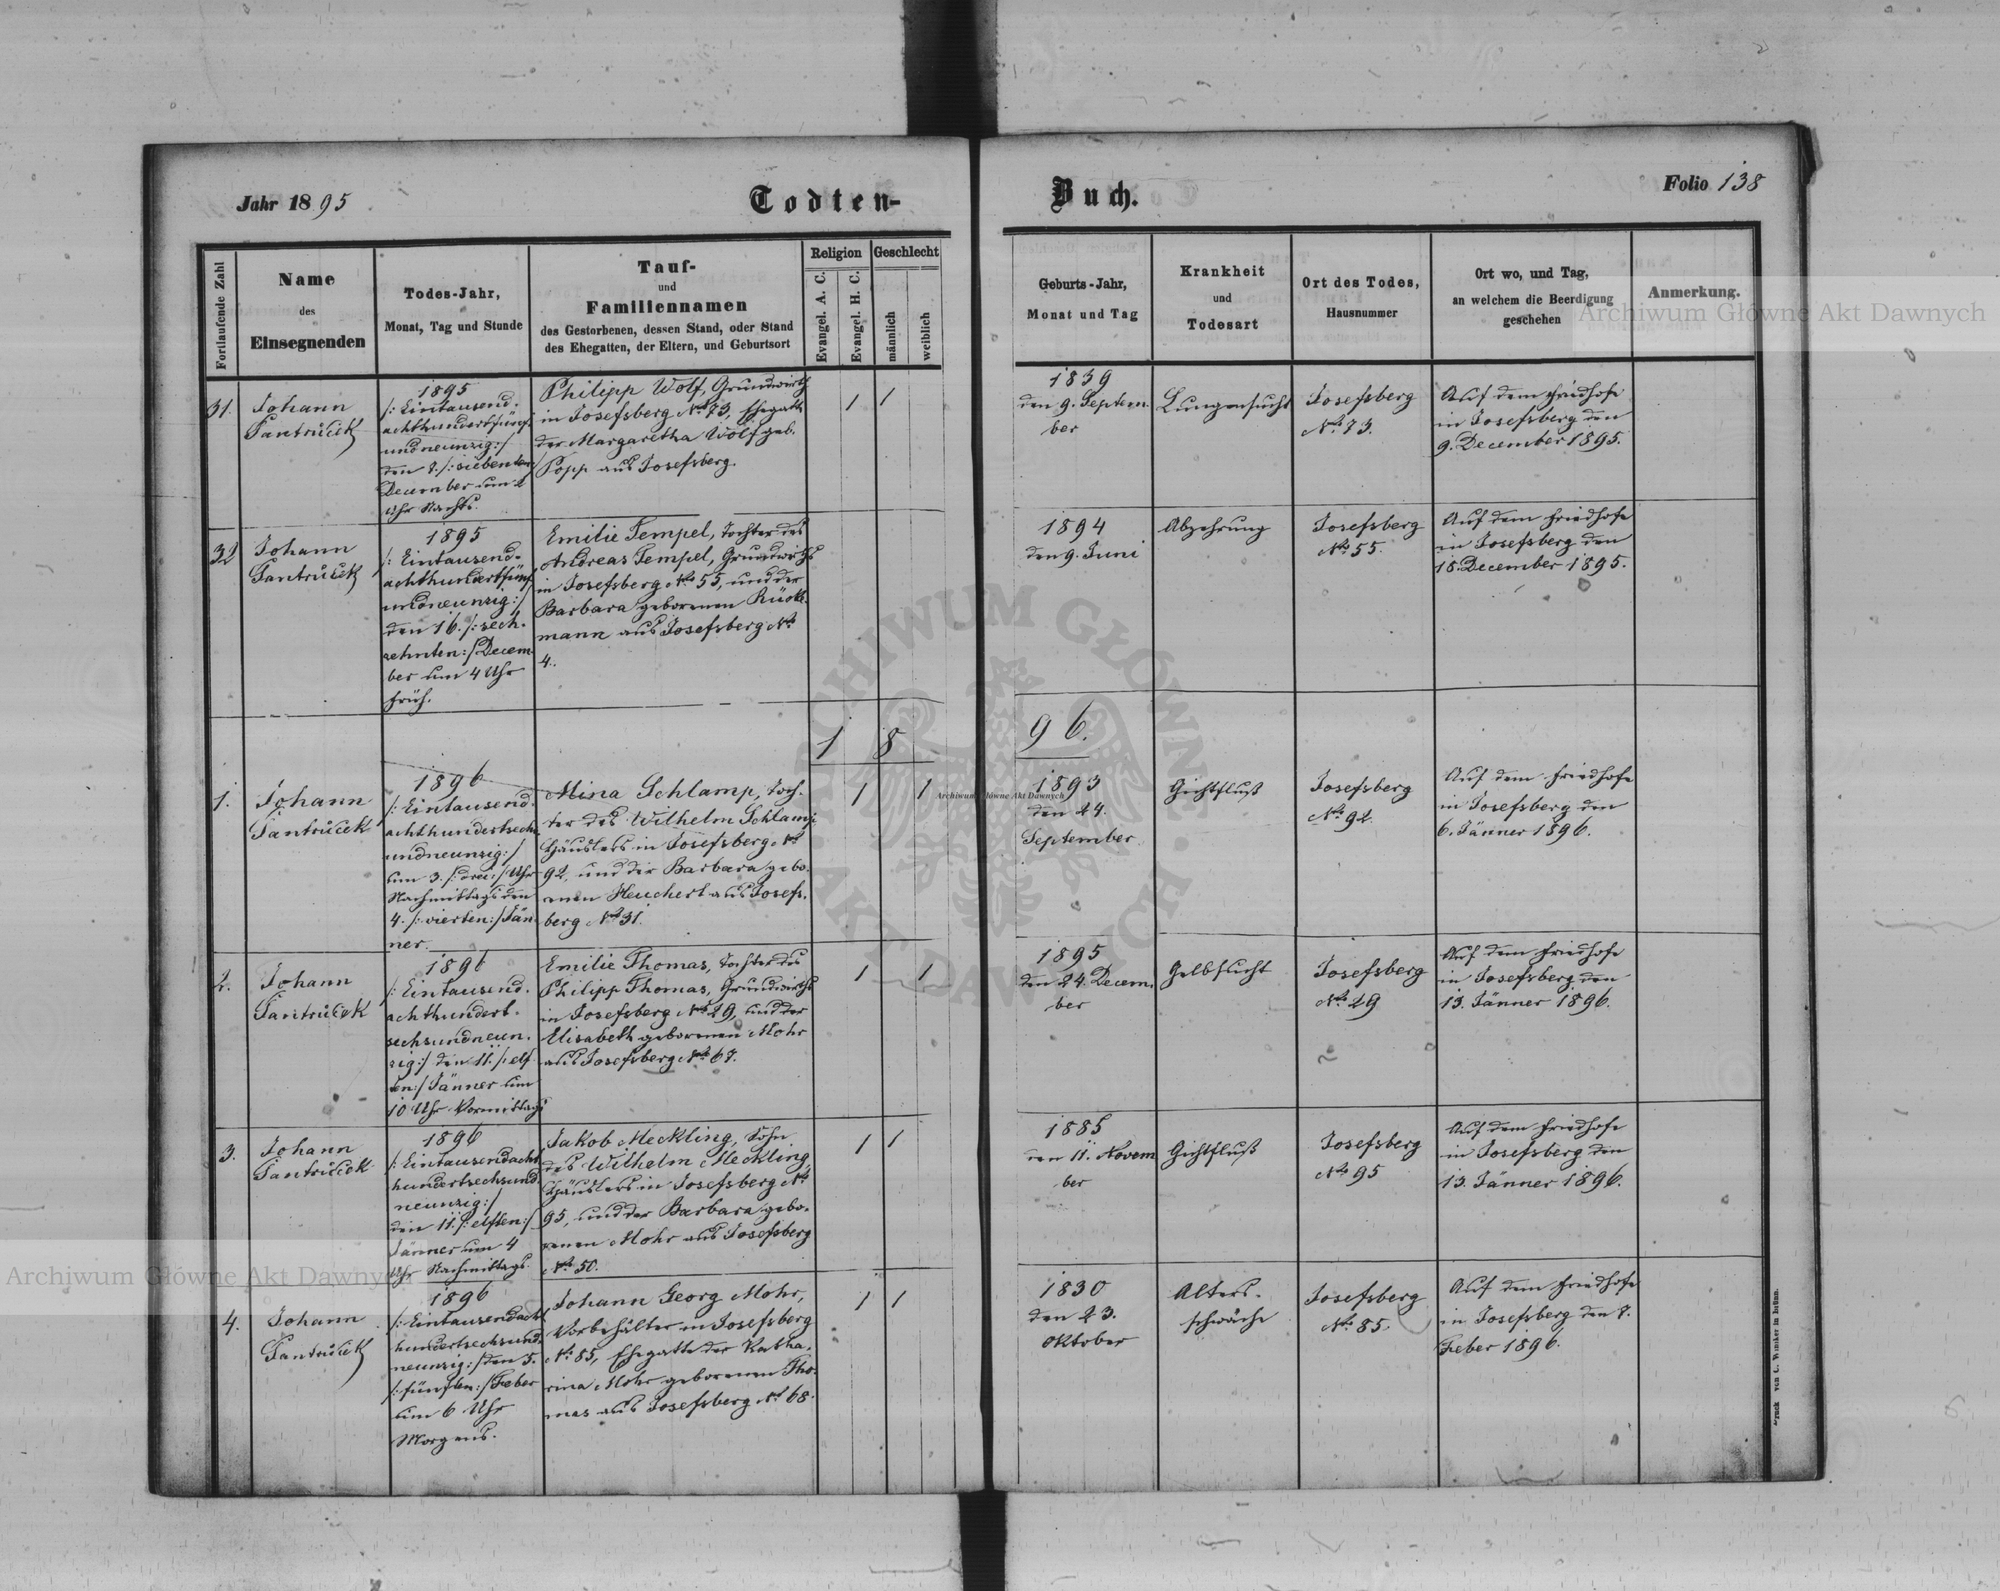 Jahr 1895
Todten-
Buch.
Folio 138
Fortlaufende Zahl
Name
des
Einsegnenden
Todes-Jahr,
Monat, Tag und Stunde
Tauf-
und
Familiennamen
des Gestorbenen, dessen Stand, oder Stand
des Ehegatten, der Eltern, und Geburtsort
Religion
Evangel. A. C.
Evangel. H. C.
Geschlecht
männlich
weiblich
Geburts-Jahr,
Monat und Tag
Krankheit
und
Todesart
Ort des Todes,
Hausnummer
Ort wo, und Tag,
an welchem die Beerdigung
geschehen
Anmerkung.
31.
Johann
Jantrůček
1895
/: Eintausend-
achthundertfünf-
undneunzig :/
den 7. /: siebenten :/
December um 2
Uhr Nachts.
Philipp Wolf, Grundwirth
in Josefsberg No 73, Ehegatte
der Margaretha Wolf geb.
Popp aus Josefsberg.
1
1
1839
den 9. Septem-
ber
Lungensucht
Josefsberg
No 73.
Auf dem Friedhofe
in Josefsberg den
9. December 1895.
32
Johann
Jantrůček
1895
/: Eintausend-
achthundertfünf
undneunzig :/
den 16. /: sech-
zehnten :/ Decem-
ber um 4 Uhr
früh.
Emilie Tempel, Tochter des
Andreas Tempel, Grundwirths
in Josefsberg No 55, und der
Barbara geborenen Rück-
mann aus Josefsberg No
4.
1894
den 9. Juni
Abzehrung
Josefsberg
No 55.
Auf dem Friedhofe
in Josefsberg den
18. December 1895.
18
96.
1.
Johann
Jantrůček
1896
/: Eintausend-
achthundertsechs-
undneunzig :/
um 3. /: drei :/ Uhr
Nachmittags den
4. /: vierten :/ Jän-
ner.
Mina Schlamp, Toch-
ter des Wilhelm Schlamp
Häuslers in Josefsberg No
92, und der Barbara gebo-
renen Heuchert aus Josefs-
berg No 31.
1
1
1893
den 24.
September
Gichtfluß
Josefsberg
No 92.
Auf dem Friedhofe
in Josefsberg den
6. Jänner 1896.
2.
Johann
Jantrůček
1896
/: Eintausend-
achthundert-
sechsundneun-
zig :/ den 11. /: elf-
ten :/ Jänner um
10 Uhr Vormittags
Emilie Thomas, Tochter des
Philipp Thomas, Grundwirths
in Josefsberg No 29, und der
Elisabeth geborenen Mohr
aus Josefsberg No 67.
1
1
1895
den 24. Decem-
ber
Gelbsucht
Josefsberg
No 29
Auf dem Friedhofe
in Josefsberg den
13. Jänner 1896.
3.
Johann
Jantrůček
1896
/: Eintausendacht
hundertsechsund
neunzig :/
den 11. /: elften :/
Jänner um 4
Uhr Nachmittags.
Jakob Meckling, Sohn
des Wilhelm Meckling,
Häuslers in Josefsberg No
95, und der Barbara gebo-
renen Mohr aus Josefsberg
No 50.
1
1
1885
den 11. Novem
ber
Gichtfluß
Josefsberg
No 95
Auf dem Friedhofe
in Josefsberg den
13. Jänner 1896.
4.
Johann
Jantrůček
1896
/: Eintausendacht
hundertsechsund-
neunzig :/ den 5.
/: fünften :/ Feber
um 6 Uhr
Morgens.
Johann Georg Mohr,
Vorbehälter in Josefsberg
No 85, Ehegatte der Katha-
rina Mohr geborenen Tho-
mas aus Josefsberg No 68.
1
1
1830
den 23.
Oktober
Alters-
schwäche
Josefsberg
No 85.
Auf dem Friedhofe
in Josefsberg den 7.
Feber 1896.
Druck von C. Winiker in Brünn.
Archiwum Główne Akt Dawnych
Archiwum Główne Akt Dawnych
Archiwum Główne Akt Dawnych
ARCHIWUM GŁÓWNE AKT DAWNYCH